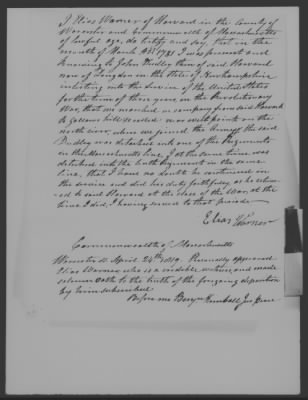 I Elias Warner of Harvard in the County of
Worcester and Commonwealth of Massachusetts
of lawful age, do testify and say, that in the
month of March AD 1781 I was present and
knowing to John Dudley then of said Harvard
now of Langdon in the State of Newhampshire
enlisting into the Service of the United States
for the term of three years, in the Revolution
War, that we marched in company from said Harvard
to gallows hill so called near west point on the
north river, where we joined the Army; the said
Dudley was detached into one of the Regiments
in the Massachusetts line, I at the same time was
detached into the tenth regiment in the same
line, that I have no doubt he continued in
the service and did his duty faithfully, as he return
ed to said Harvard at the close of the War, at the
time I did, I having served to that period
Elias Warner
Commonwealth of Massachusetts
Worcester ss April 24th 1819. Personally appeared
Elias Warner, who is a credible witness, and made
solemn oath to the truth of the foregoing deposition
by him subscribed
Before me Benjn Kimball Jus Peace